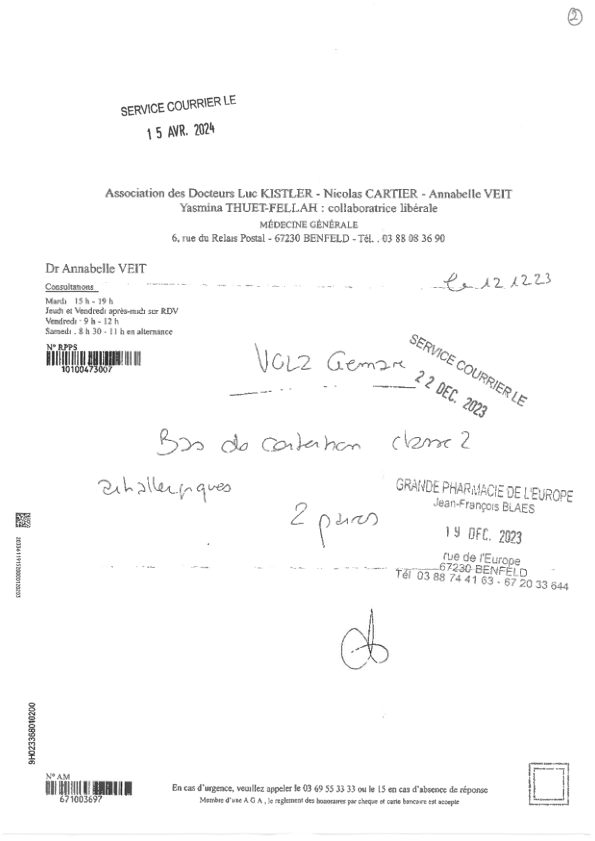 2
SERVICE COURRIER LE
15 AVR. 2024
Association des Docteurs Luc KISTLER - Nicolas CARTIER - Annabelle VEIT
Yasmina THUET-FELLAH : collaboratrice libérale
MÉDECINE GÉNÉRALE
6, rue du Relais Postal - 67230 BENFELD - Tél. . 03 88 08 36 90
Dr Annabelle VEIT
le 12 12 23
Consultations
Mardi 15 h - 19 h
Jeudi et Vendredi après-midi sur RDV
Vendredi - 9 h - 12 h
Samedi . 8 h 30 - 11 h en alternance
N° RPPS
10100473007
SERVICE COURRIER LE
22 DEC. 2023
Bas de contention classe 2
GRANDE PHARMACIE DE L'EUROPE
Jean-François BLAES
2 paires
19 DEC. 2023
rue de l'Europe
67230 BENFELD
Tél 03 88 74 41 63 - 67 20 33 644
9H023358010200
N° AM
671003697
En cas d'urgence, veuillez appeler le 03 69 55 33 33 ou le 15 en cas d'absence de réponse
Membre d'une A G A , le reglement des honoraires par cheque et carte bancaire est accepté